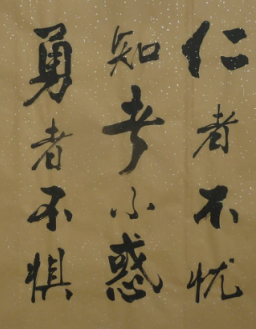 仁者不忧
知者不惑
勇者不惧